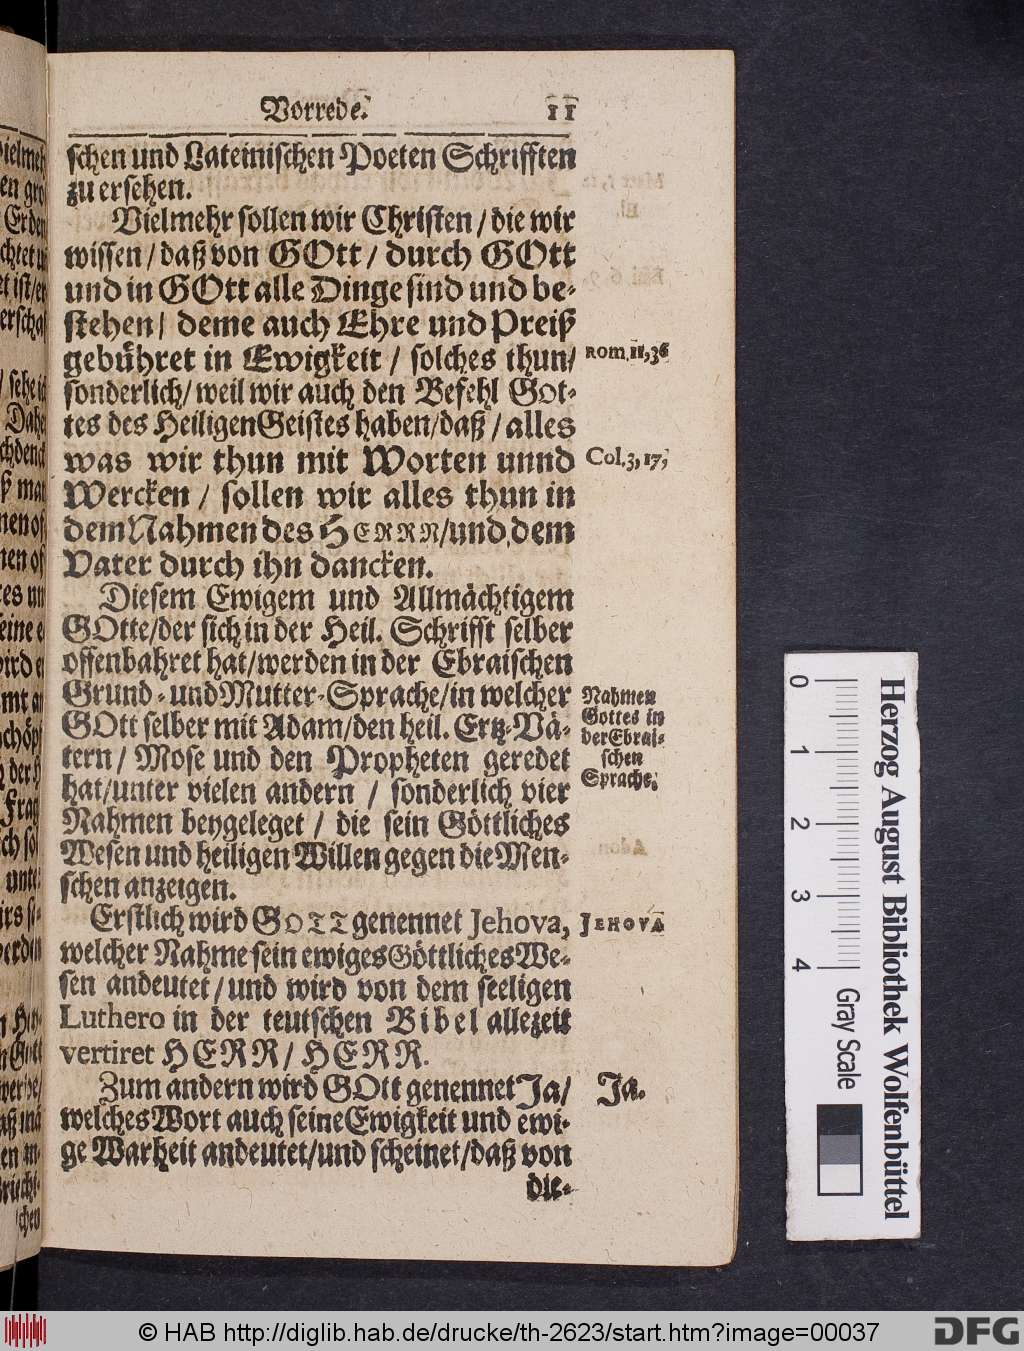 Vorrede. 11
schen und Lateinischen Poeten Schrifften
zu ersehen.
Vielmehr sollen wir Christen / die wir
wissen / daß von GOtt / durch GOtt
und in GOtt alle Dinge sind und be-
stehen / deme auch Ehre und Preiß
gebühret in Ewigkeit / solches thun /
Rom. 11, 36
sonderlich / weil wir auch den Befehl Got-
tes des Heiligen Geistes haben / daß / alles
was wir thun mit Worten unnd
Col. 3, 17,
Wercken / sollen wir alles thun in
dem Nahmen des HERRN / und dem
Vater durch ihn dancken.
Diesem Ewigem und Allmächtigem
GOtte / der sich in der Heil. Schrifft selber
offenbahret hat / werden in der Ebraischen
Grund- und Mutter-Sprache / in welcher
GOtt selber mit Adam / den heil. Ertz-Vä-
tern / Mose und den Propheten geredet
hat / unter vielen andern / sonderlich vier
Nahmen beygeleget / die sein Göttliches
Wesen und heiligen Willen gegen die Men-
schen anzeigen.
Nahmen
Gottes in
der Ebrai-
schen
Sprache.
Erstlich wird GOTT genennet Jehova,
JEHOVA
welcher Nahme sein ewiges Göttliches We-
sen andeutet / und wird von dem seeligen
Luthero in der teutschen Bibel allezeit
vertiret HERR / HERR.
Zum andern wird GOtt genennet Ja /
Ja.
welches Wort auch seine Ewigkeit und ewi-
ge Warheit andeutet / und scheinet / daß von
die-
0 1 2 3 4
Gray Scale
Herzog August Bibliothek Wolfenbüttel
© HAB http://diglib.hab.de/drucke/th-2623/start.htm?image=00037
DFG